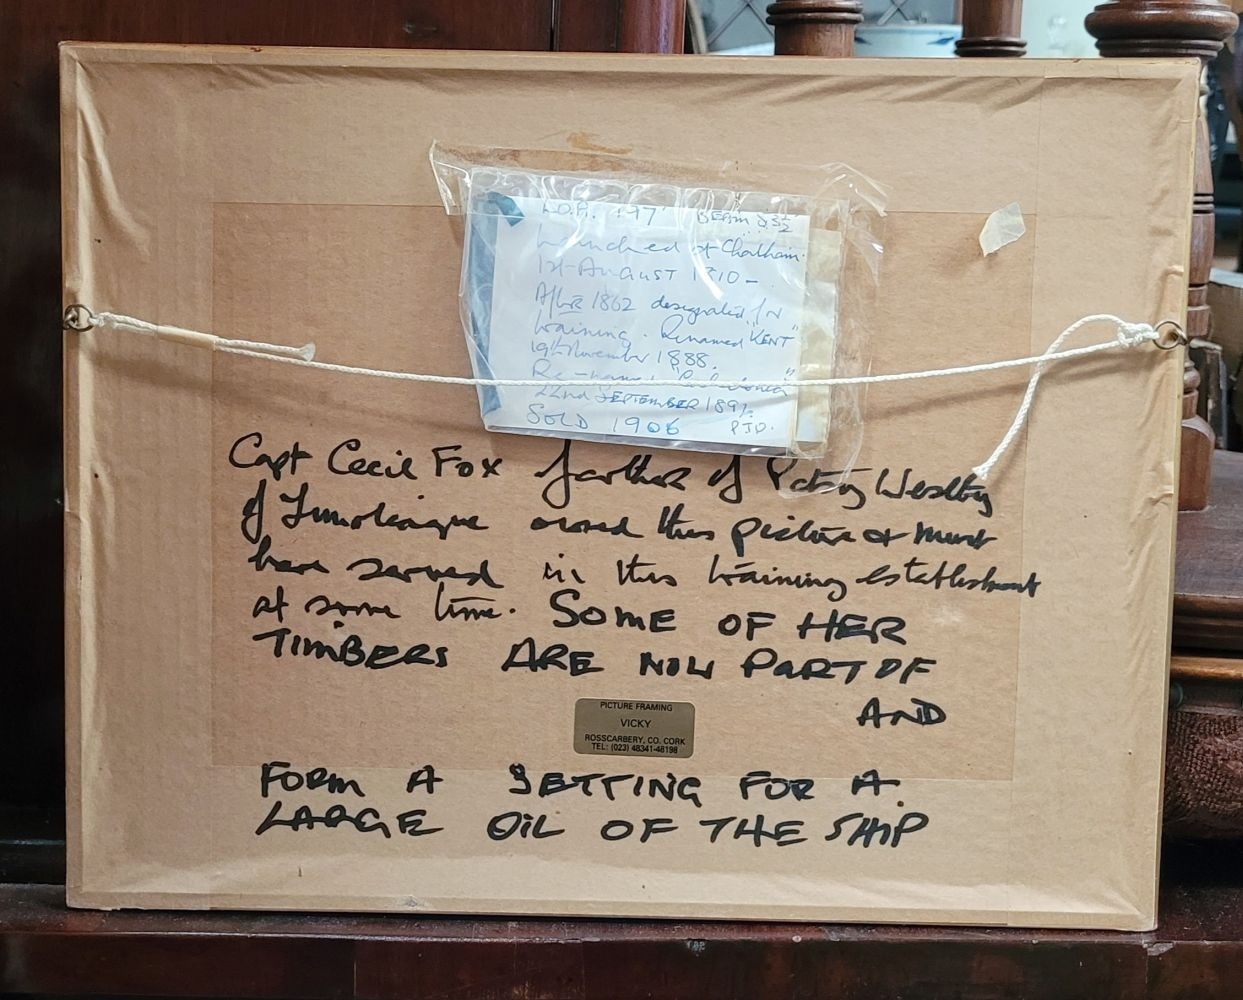 L.O.A. 197 BEAM 53½
Launched at Chatham.
1st August 1810 –
After 1862 designated for
training. Renamed "KENT"
19th November 1888.
Re-named
22nd SEPTEMBER 1891.
SOLD 1906 PTO.
Capt Cecil Fox farther of Patsy Westby
of owned this picture & must
have served in this training establishment
at some time. SOME OF HER
TIMBERS ARE NOW PART OF
AND
PICTURE FRAMING
VICKY
ROSSCARBERY, CO. CORK
TEL: (023) 48341-48198
FORM A SETTING FOR A
LARGE OIL OF THE SHIP